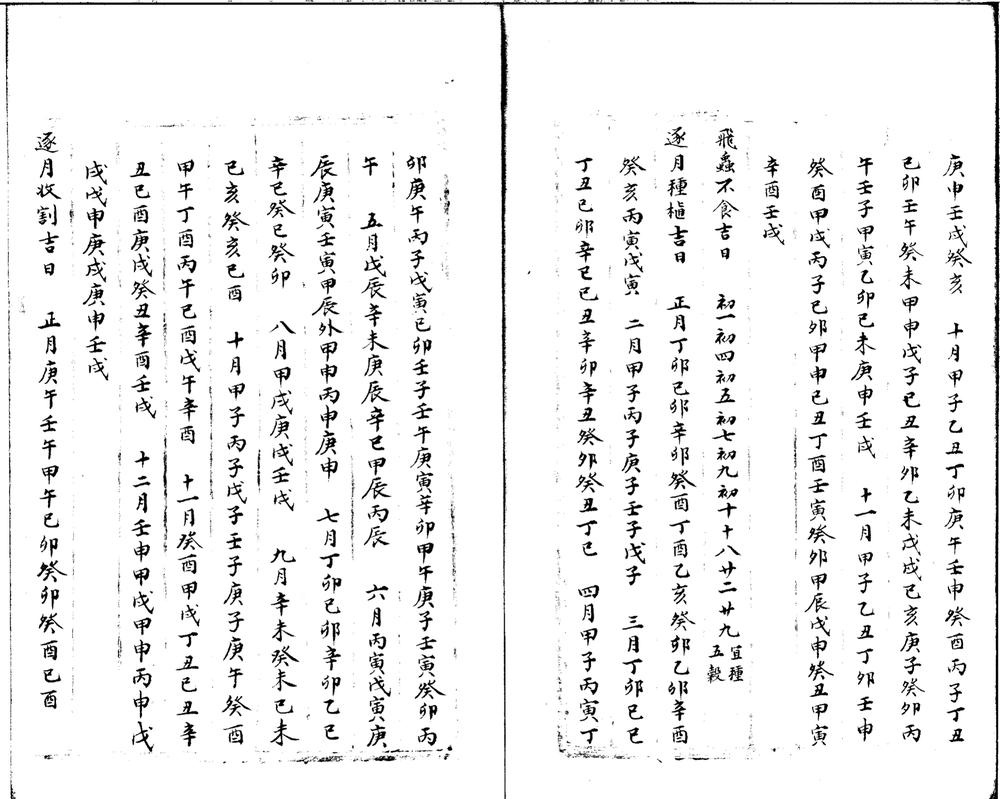 庚申壬戌癸亥　十月甲子乙丑丁卯庚午壬申癸酉丙子丁丑
己卯壬午癸未甲申戊子己丑辛卯乙未戊戌己亥庚子癸卯丙
午壬子甲寅乙卯己未庚申壬戌　十一月甲子乙丑丁卯壬申
癸酉甲戌丙子己卯甲申己丑丁酉壬寅癸卯甲辰戊申癸丑甲寅
辛酉壬戌
飛蟲不食吉日　初一初四初五初七初九初十十八廿二廿九宜種五穀
逐月種植吉日　正月丁卯己卯辛卯癸酉丁酉乙亥癸卯乙卯辛酉
癸亥丙寅戊寅　二月甲子丙子庚子壬子戊子　三月丁卯己巳
丁丑己卯辛巳己丑辛卯辛丑癸卯癸丑丁巳　四月甲子丙寅丁
卯庚午丙子戊寅己卯壬子壬午庚寅辛卯甲午庚子壬寅癸卯丙
午　五月戊辰辛未庚辰辛巳甲辰丙辰　六月丙寅戊寅庚
辰庚寅壬寅甲辰外甲申丙申庚申　七月丁卯己卯辛卯乙巳
辛巳癸巳癸卯　八月甲戌庚戌壬戌　九月辛未癸未己未
己亥癸亥己酉　十月甲子丙子戊子壬子庚子庚午癸酉
甲午丁酉丙午己酉戊午辛酉　十一月癸酉甲戌丁丑己丑辛
丑己酉庚戌癸丑辛酉壬戌　十二月壬申甲戌甲申丙申戊
戌戊申庚戌庚申壬戌
逐月收割吉日　正月庚午壬午甲午己卯癸卯癸酉己酉